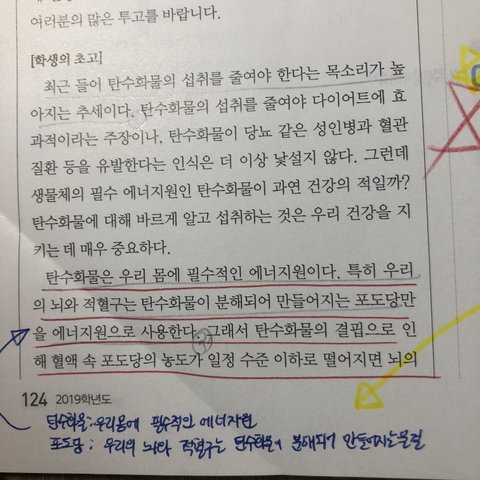 여러분의 많은 투고를 바랍니다.
[학생의 초고]
최근 들어 탄수화물의 섭취를 줄여야 한다는 목소리가 높
아지는 추세이다. 탄수화물의 섭취를 줄여야 다이어트에 효
과적이라는 주장이나, 탄수화물이 당뇨 같은 성인병과 혈관
질환 등을 유발한다는 인식은 더 이상 낯설지 않다. 그런데
생물체의 필수 에너지원인 탄수화물이 과연 건강의 적일까?
탄수화물에 대해 바르게 알고 섭취하는 것은 우리 건강을 지
키는 데 매우 중요하다.
탄수화물은 우리 몸에 필수적인 에너지원이다. 특히 우리
의 뇌와 적혈구는 탄수화물이 분해되어 만들어지는 포도당만
을 에너지원으로 사용한다. 그래서 탄수화물의 결핍으로 인
해 혈액 속 포도당의 농도가 일정 수준 이하로 떨어지면 뇌의
124 2019학년도
탄수화물: 우리몸에 필수적인 에너지원
포도당 : 우리의 뇌와 적혈구는 탄수화물이 분해되어 만들어지는물질